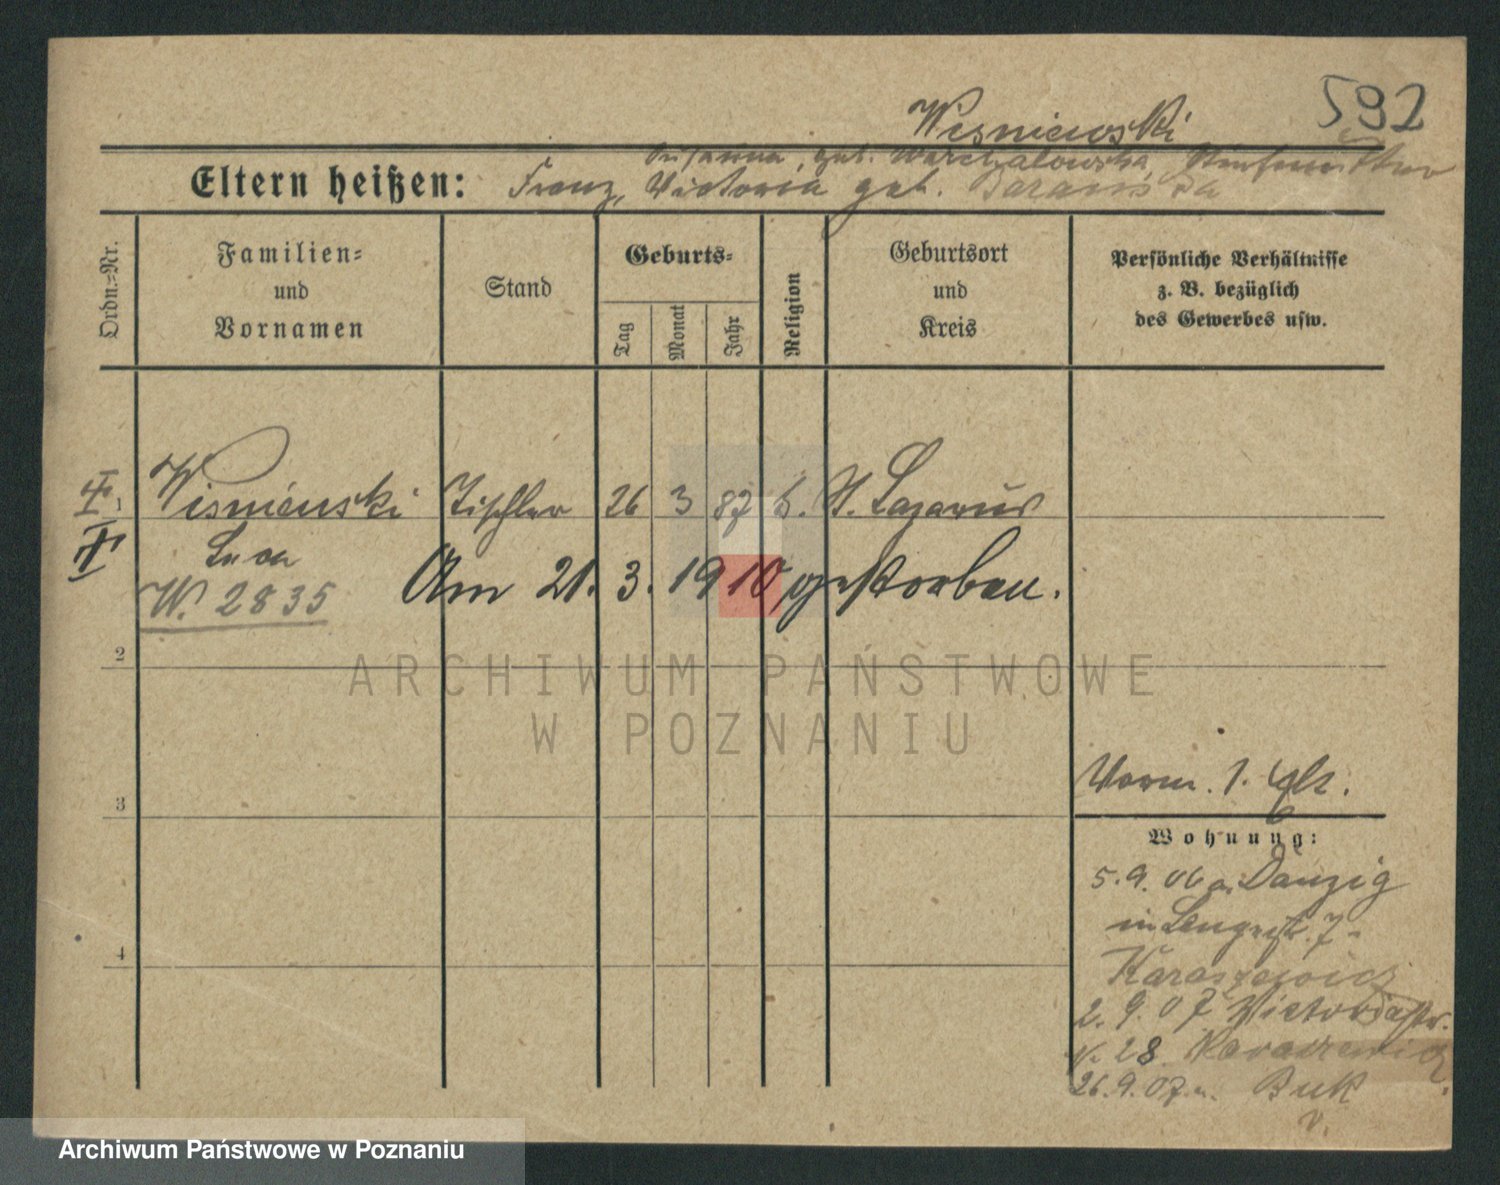 592
Wisniewski
geb. Warchalowska, Stiefmutter
Eltern heißen: Franz, Victoria geb.
Ordn.-Nr.
Familien-
und
Vornamen
Stand
Geburts-
Tag
Monat
Jahr
Religion
Geburtsort
und
Kreis
Persönliche Verhältnisse
z. B. bezüglich
des Gewerbes usw.
Wisniewski Tischler 26 3 87 k. St. Lazarus
Am 21. 3. 1910 gestorben.
W. 2835
2
3
4
Vorm. 1.
Wohnung:
5.9.06 a. Danzig
in 7
2.9.07 Victoriastr.
N. 28
26.9.07 n. Buk
ARCHIWUM PAŃSTWOWE
W POZNANIU
Archiwum Państwowe w Poznaniu